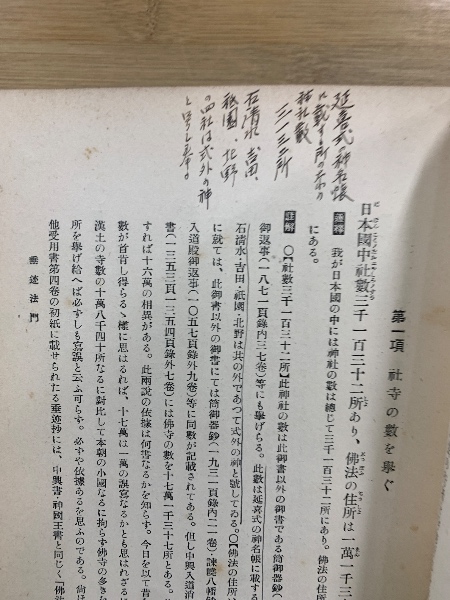 延喜式の神名帳
に載する所のすべての
神社数
三一三二所
石清水、吉田、
祇園、北野
の四社は式外の神
第一項　社寺の數を擧ぐ
日本國中社數三千一百三十二所あり、佛法の住所は一萬一千三
通釋　我が日本國の中には神社の數は總じて三千一百三十二所にあり。佛法の住所
にある。
註解　〇【社數三千一百三十二所】此神社の數は此御書以外の御書である筒御器鈔(
御返事(一八七一頁錄內三七卷)等にも擧げらる。此數は延喜式の神名帳に載する
石清水・吉田・祇園・北野は其の外であつて式外の神と號してゐる。〇【佛法の住所
に就ては、此御書以外の御書にては筒御器鈔(一九三一頁錄內二一卷)・諫曉八幡
入道殿御返事(一〇五七頁錄外九卷)等に同數が記載されてある。但し中興入道消
書(一三五三頁一三五四頁錄外七卷)には佛寺の數を十七萬一千三十七所とある。
すれば十六萬の相異がある。此兩說の依據は何書なるかを知らず。今日を以て昔
數が首肯し得らるゝ樣に思はるれば、十七萬は一萬の誤寫なるかとも思はれざる
漢土の寺數の十萬八千四十所なるに對比して本朝の小國なるに拘らず佛寺の多きな
所を擧げ給へば必ずしも寫誤と云ふ可らず。必ずや依據あるを思ふのである。尙拾
他受用書第四卷の初紙に載せられたる垂迹抄には、中興書・神國王書と同じく「佛法
垂迹法門